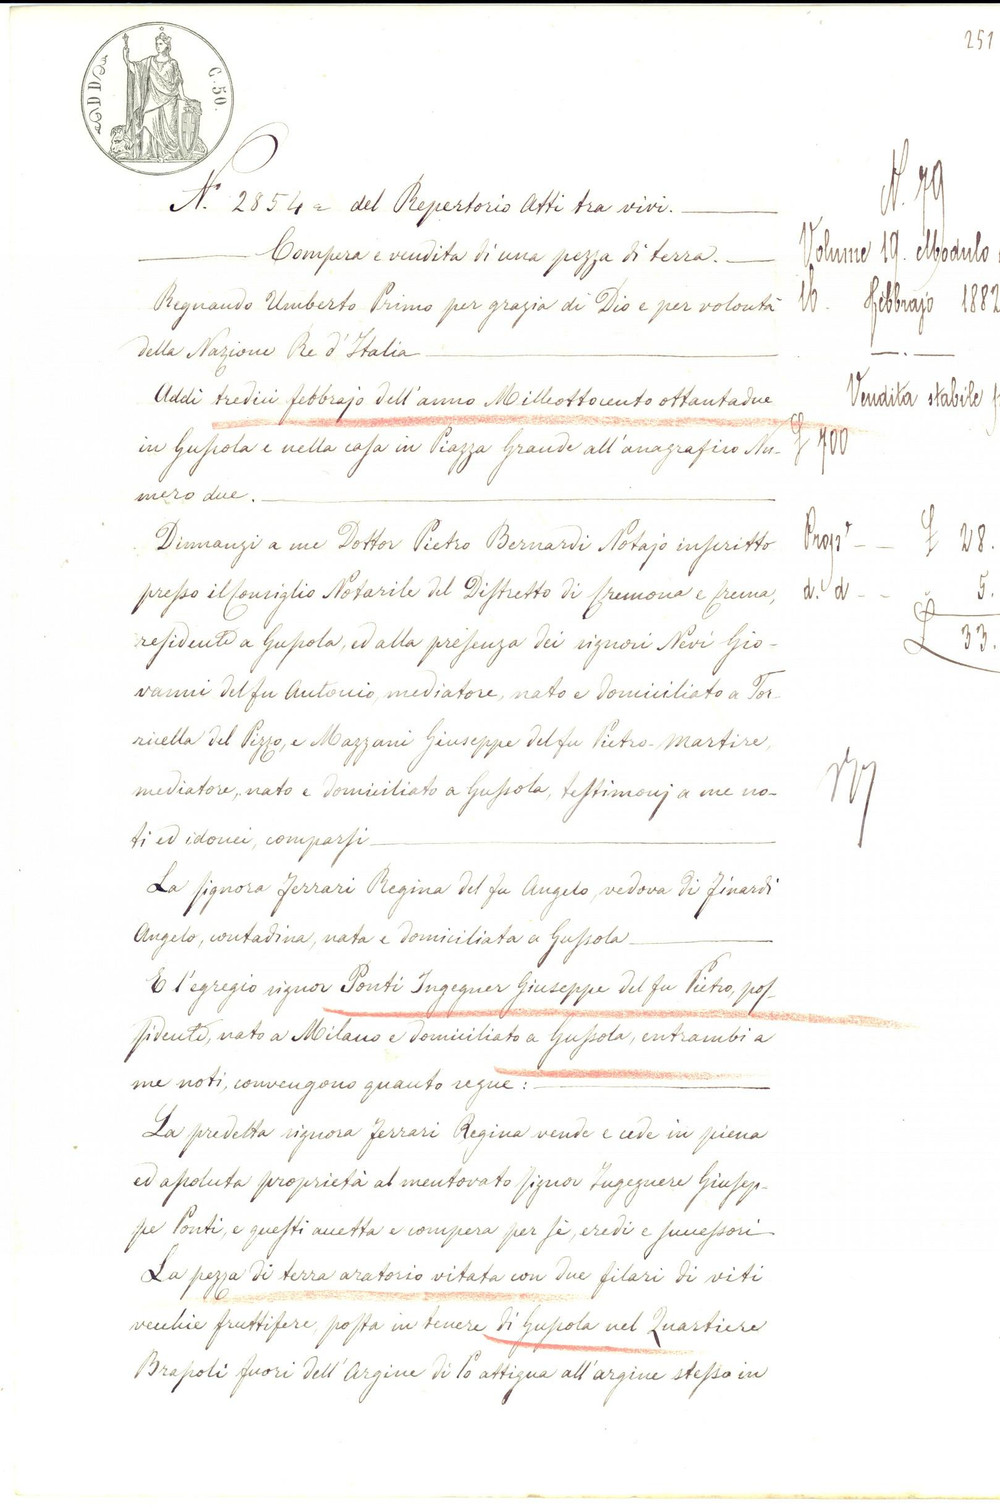 251
C. 50.
N. 2854 = del Repertorio Atti tra vivi.
Compera e vendita di una pezza di terra.
Regnando Umberto Primo per grazia di Dio e per volontà
della Nazione Re d'Italia
Addì tredici febbrajo dell'anno Milleottocento ottantadue
in Gussola e nella casa in Piazza Grande all'anagrafico Nu-
mero due.
Dinnanzi a me Dottor Pietro Bernardi Notajo inscritto
presso il Consiglio Notarile del Distretto di Cremona e Crema,
residente a Gussola, ed alla presenza dei signori Nevi Gio-
vanni del fu Antonio, mediatore, nato e domiciliato a Tor-
ricella del Pizzo, e Mazzani Giuseppe del fu Pietro-Martire,
mediatore, nato e domiciliato a Gussola, testimonj a me no-
ti ed idonei, comparsi
La signora Ferrari Regina del fu Angelo, vedova di Finardi
Angelo, contadina, nata e domiciliata a Gussola
E l'egregio signor Ponti Ingegner Giuseppe del fu Pietro, pos-
sidente, nato a Milano e domiciliato a Gussola, entrambi a
me noti, convengono quanto segue:
La predetta signora Ferrari Regina vende e cede in piena
ed assoluta proprietà al mentovato signor Ingegnere Giusep-
pe Ponti, e questi accetta e compera per sè, eredi e successori
La pezza di terra aratorio vitata con due filari di viti
vecchie fruttifere, posta in tenere di Gussola nel Quartiere
Brapoli fuori dell'Argine di Po attigua all'argine stesso in
N. 79
Volume 19. Modulo
16. febbrajo 1882
Vendita stabile
£ 700
Prop. £ 28.
d. d 5.
£ 33.